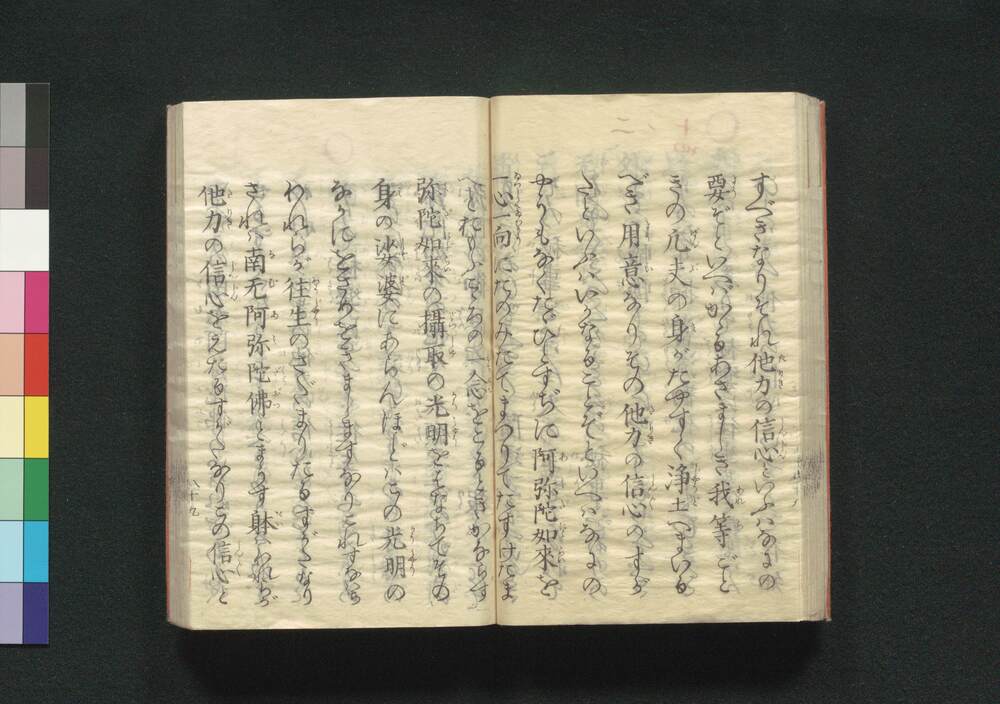 すべきなりそれ他力の信心といふはなにの
要ぞといへばかゝるあさましき我等ごと
きの凡夫の身がたやすく浄土へまいる
べき用意なりその他力の信心のすが
たといふはいかなることぞといへばなにの
やうもなくたゞひとすぢに阿弥陀如來を
一心一向にたのみたてまつりてたすけたま
へとおもふこゝろの一念をこるときかならず
弥陀如來の攝取の光明をはなちてその
身の娑婆にあらんほどはこの光明の
なかにをさめをきましますなりこれすなはち
われらが往生のさだまりたるすがたなり
されば南无阿弥陀佛とまうす躰はわれらが
他力の信心をえたるすがたなりこの信心と
八十九